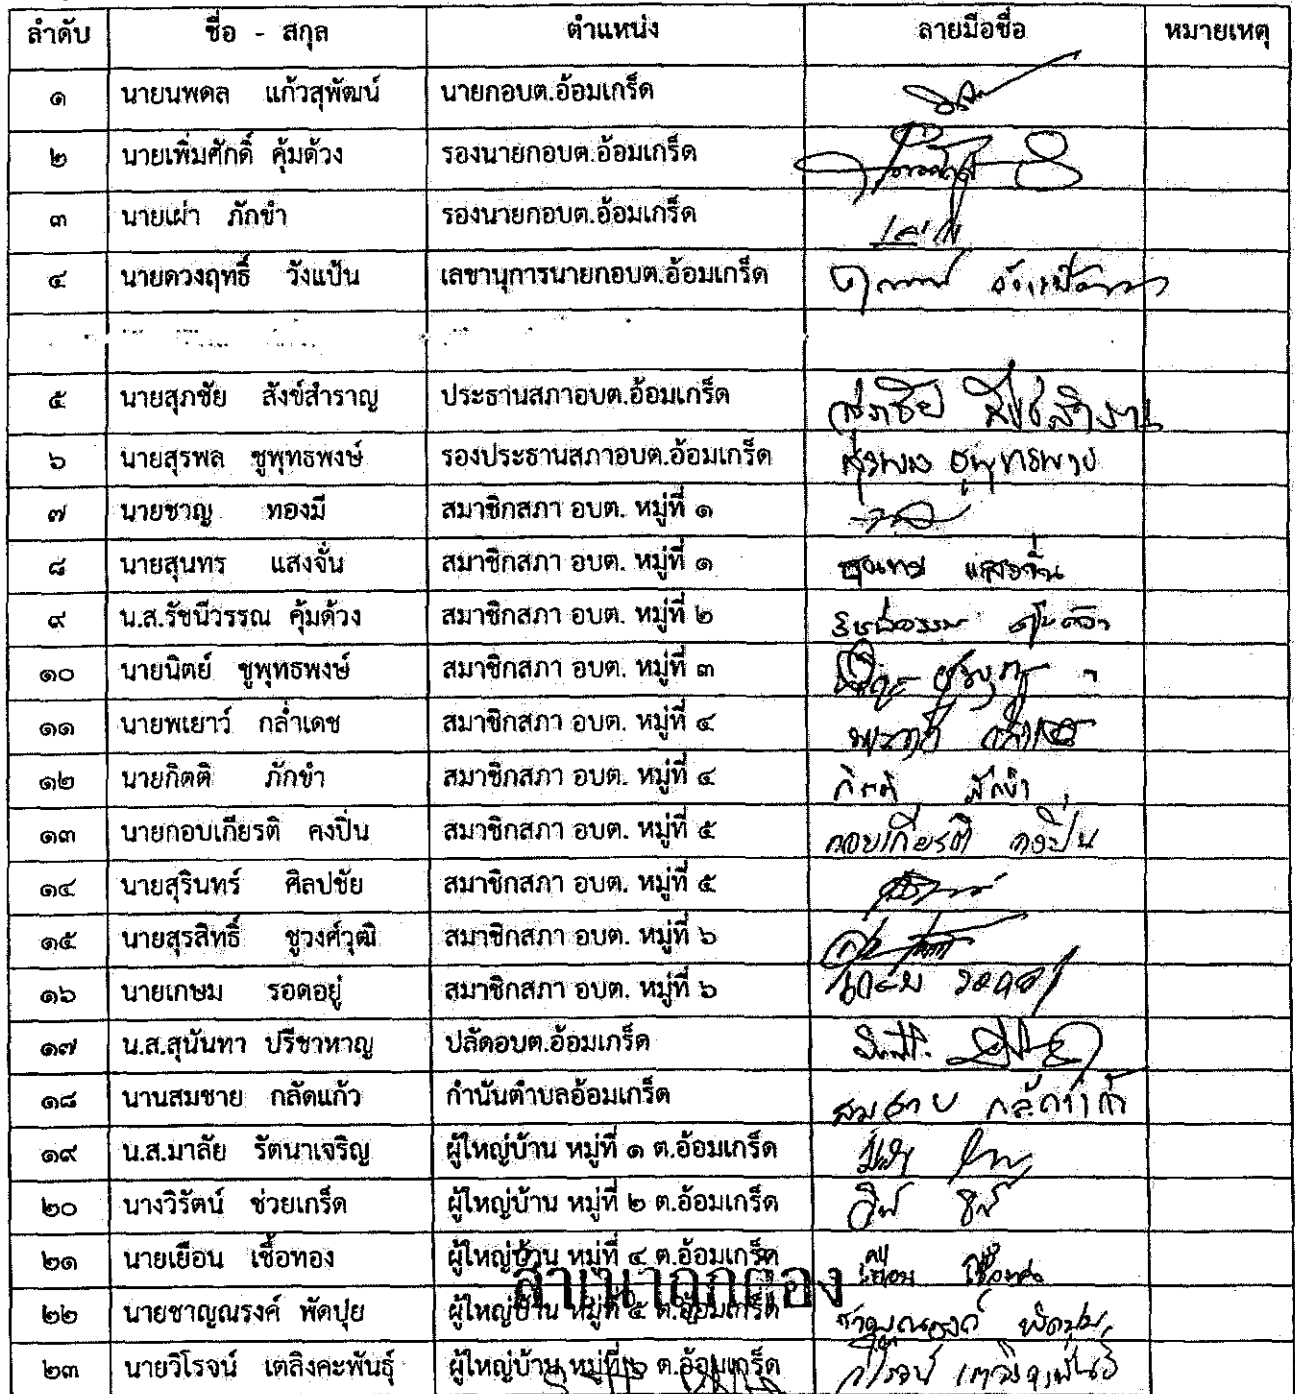 ลำดับ ชื่อ - สกุล ตำแหน่ง ลายมือชื่อ หมายเหตุ
๑ นายนพดล แก้วสุพัฒน์ นายกอบต.อ้อมเกร็ด
๒ นายเพิ่มศักดิ์ คุ้มด้วง รองนายกอบต.อ้อมเกร็ด
๓ นายเผ่า ภักขำ รองนายกอบต.อ้อมเกร็ด
๔ นายดวงฤทธิ์ วังแป้น เลขานุการนายกอบต.อ้อมเกร็ด
๕ นายสุภชัย สังข์สำราญ ประธานสภาอบต.อ้อมเกร็ด สุภชัย สังข์สำราญ
๖ นายสุรพล ชูพุทธพงษ์ รองประธานสภาอบต.อ้อมเกร็ด สุรพล ชูพุทธพงษ์
๗ นายชาญ ทองมี สมาชิกสภา อบต. หมู่ที่ ๑
๘ นายสุนทร แสงจั่น สมาชิกสภา อบต. หมู่ที่ ๑ สุนทร แสงจั่น
๙ น.ส.รัชนีวรรณ คุ้มด้วง สมาชิกสภา อบต. หมู่ที่ ๒ รัชนีวรรณ คุ้มด้วง
๑๐ นายนิตย์ ชูพุทธพงษ์ สมาชิกสภา อบต. หมู่ที่ ๓
๑๑ นายพเยาว์ กล่ำเดช สมาชิกสภา อบต. หมู่ที่ ๔
๑๒ นายกิตติ ภักขำ สมาชิกสภา อบต. หมู่ที่ ๔ กิตติ ภักขำ
๑๓ นายกอบเกียรติ คงปิ่น สมาชิกสภา อบต. หมู่ที่ ๕ กอบเกียรติ คงปิ่น
๑๔ นายสุรินทร์ ศิลปชัย สมาชิกสภา อบต. หมู่ที่ ๕
๑๕ นายสุรสิทธิ์ ชูวงศ์วุฒิ สมาชิกสภา อบต. หมู่ที่ ๖
๑๖ นายเกษม รอดอยู่ สมาชิกสภา อบต. หมู่ที่ ๖ เกษม รอดอยู่
๑๗ น.ส.สุนันทา ปรีชาหาญ ปลัดอบต.อ้อมเกร็ด
๑๘ นานสมชาย กลัดแก้ว กำนันตำบลอ้อมเกร็ด สมชาย กลัดแก้ว
๑๙ น.ส.มาลัย รัตนาเจริญ ผู้ใหญ่บ้าน หมู่ที่ ๑ ต.อ้อมเกร็ด
๒๐ นางวิรัตน์ ช่วยเกร็ด ผู้ใหญ่บ้าน หมู่ที่ ๒ ต.อ้อมเกร็ด
๒๑ นายเยือน เชื้อทอง ผู้ใหญ่บ้าน หมู่ที่ ๔ ต.อ้อมเกร็ด เยือน เชื้อทอง
สำเนาถูกต้อง
๒๒ นายชาญณรงค์ พัดปุย ผู้ใหญ่บ้าน หมู่ที่ ๕ ต.อ้อมเกร็ด ชาญณรงค์ พัดปุย
๒๓ นายวิโรจน์ เตลิงคะพันธุ์ ผู้ใหญ่บ้าน หมู่ที่ ๖ ต.อ้อมเกร็ด วิโรจน์ เตลิงคะพันธุ์